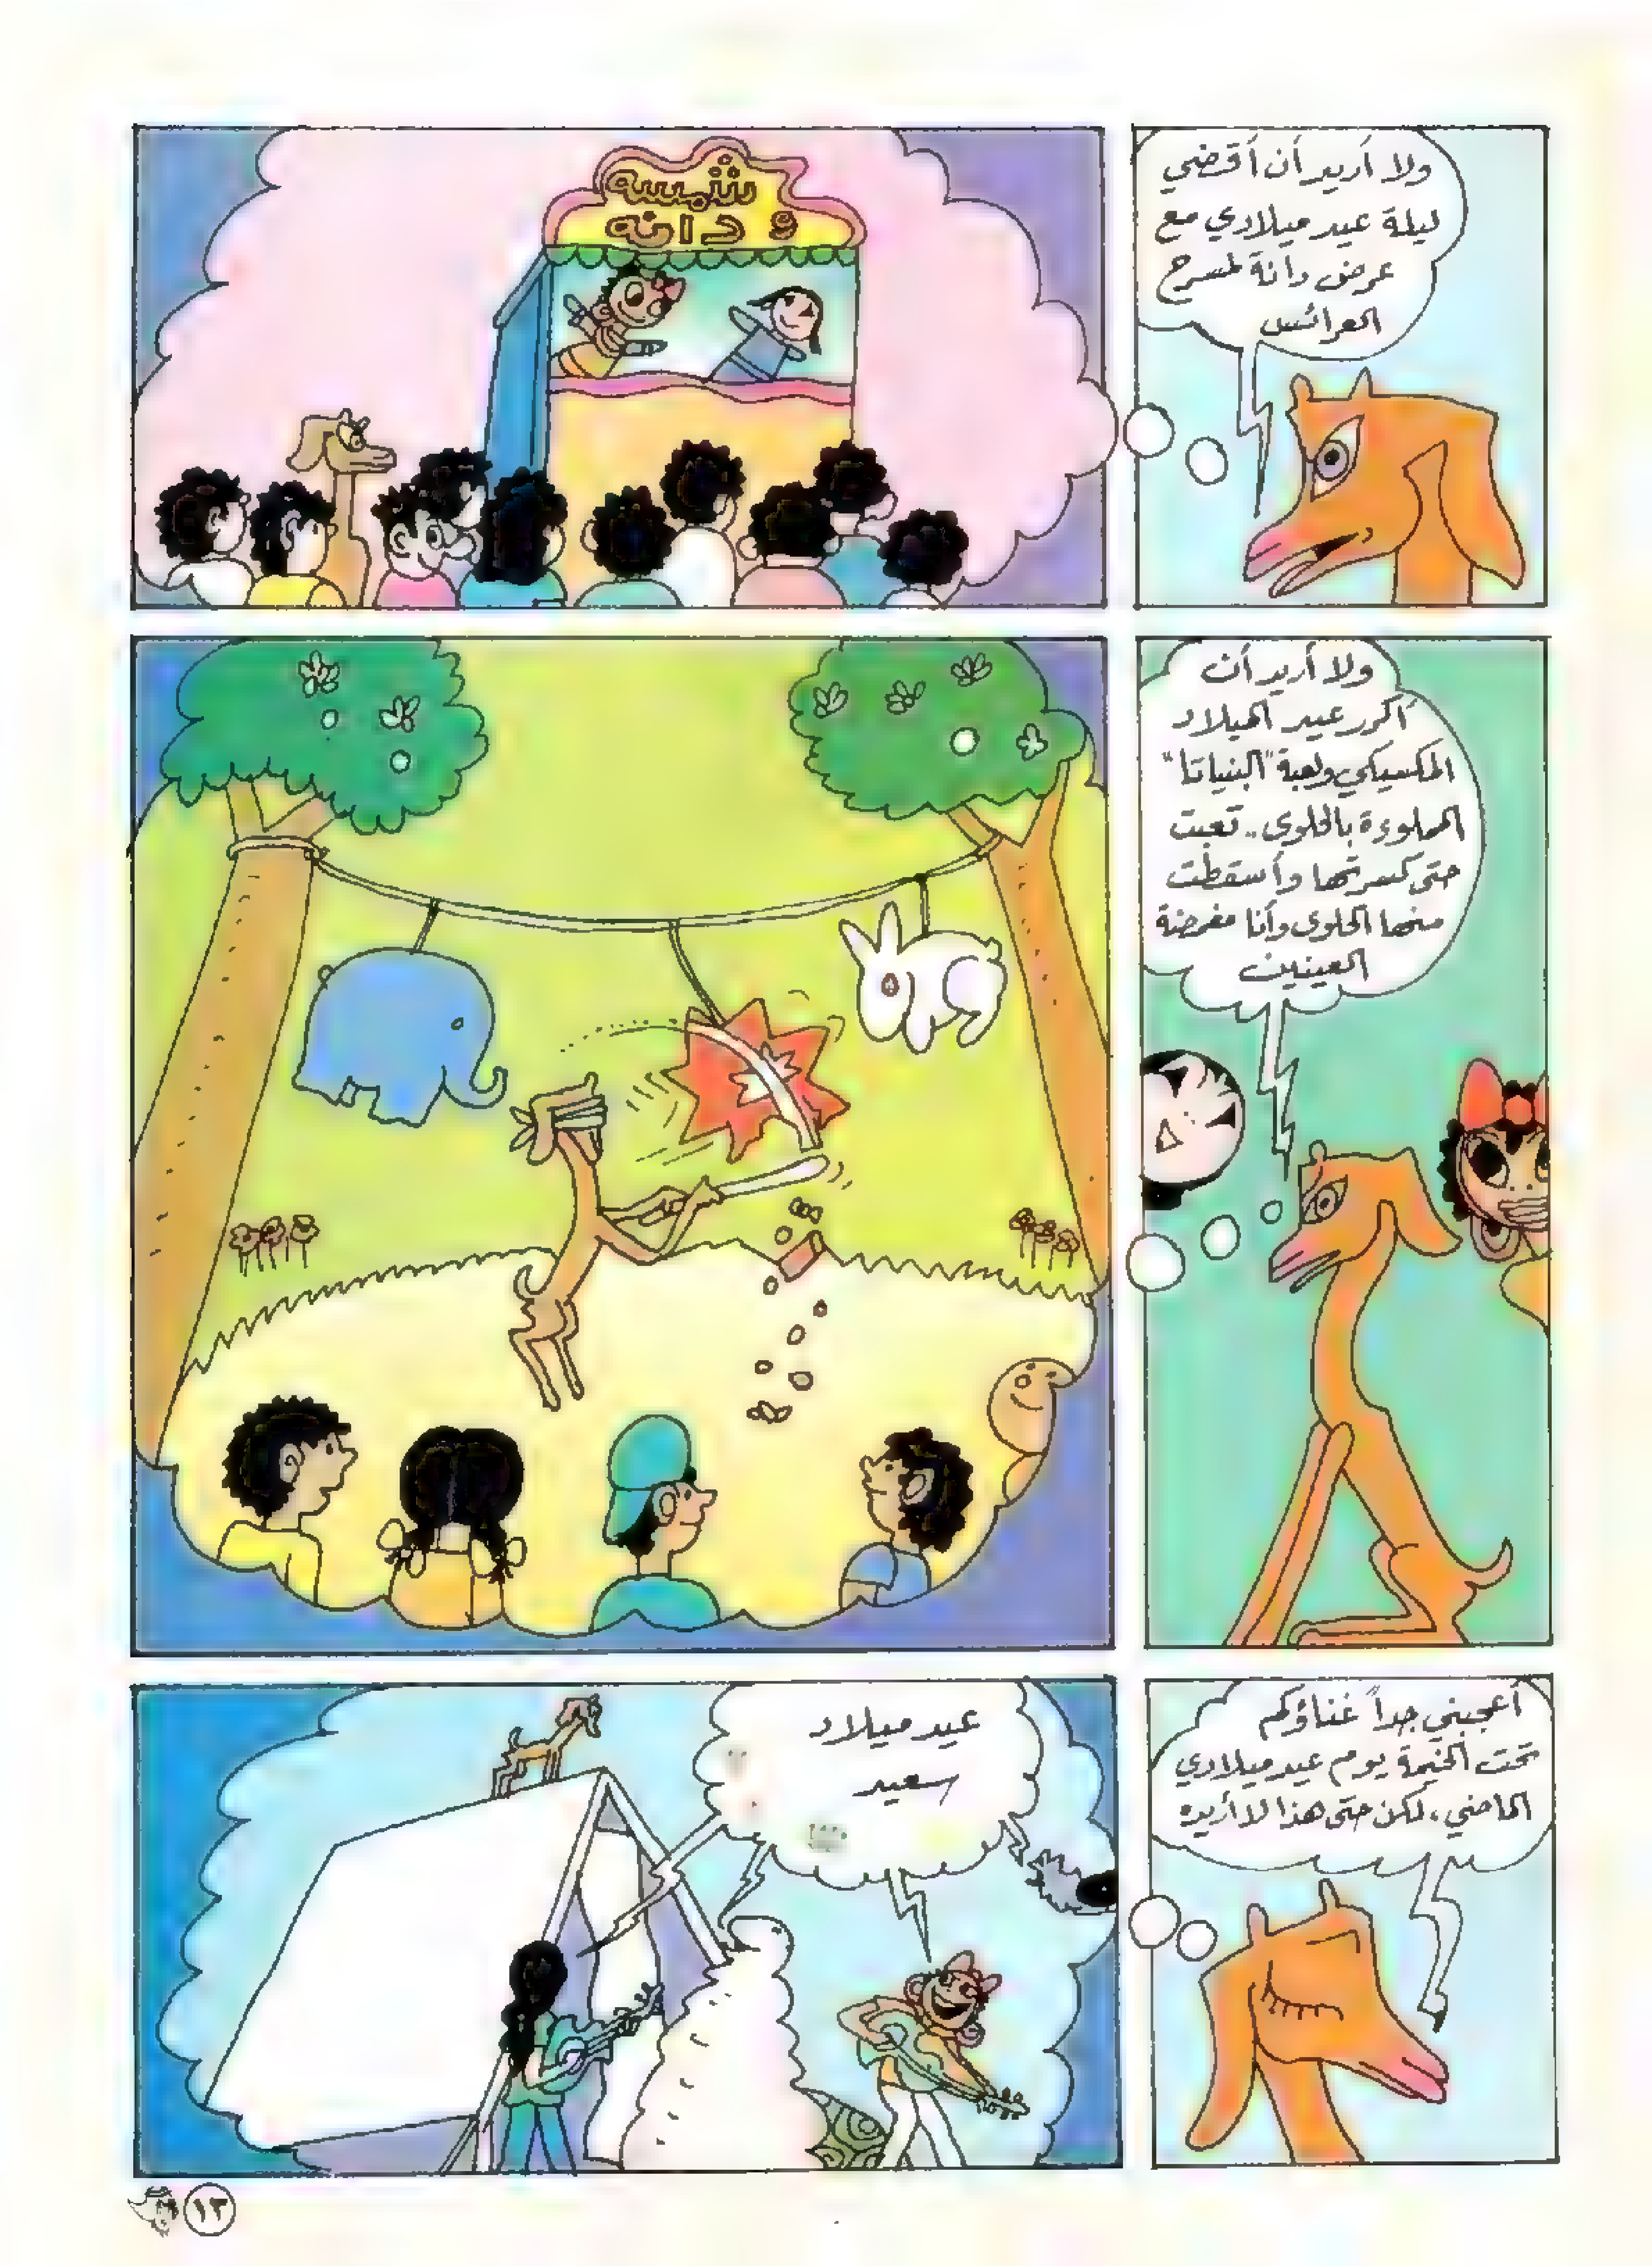 ولا أريد أن أقضي
ليلة عيد ميلادي مع
عرض دانة لمسرح
العرائس
شمسه
و دانه
ولا أريد أن
أكرر عيد الميلاد
المكسيكي ولعبة "البنياتا"
المملوءة بالحلوى.. تعبت
حتى كسرتها وأسقطت
منها الحلوى وأنا مغمضة
العينين
أعجبني جداً غناؤكم
تحت الخيمة يوم عيد ميلادي
الماضي، لكن حتى هذا لا أريده
عيد ميلاد
سعيد
١٣